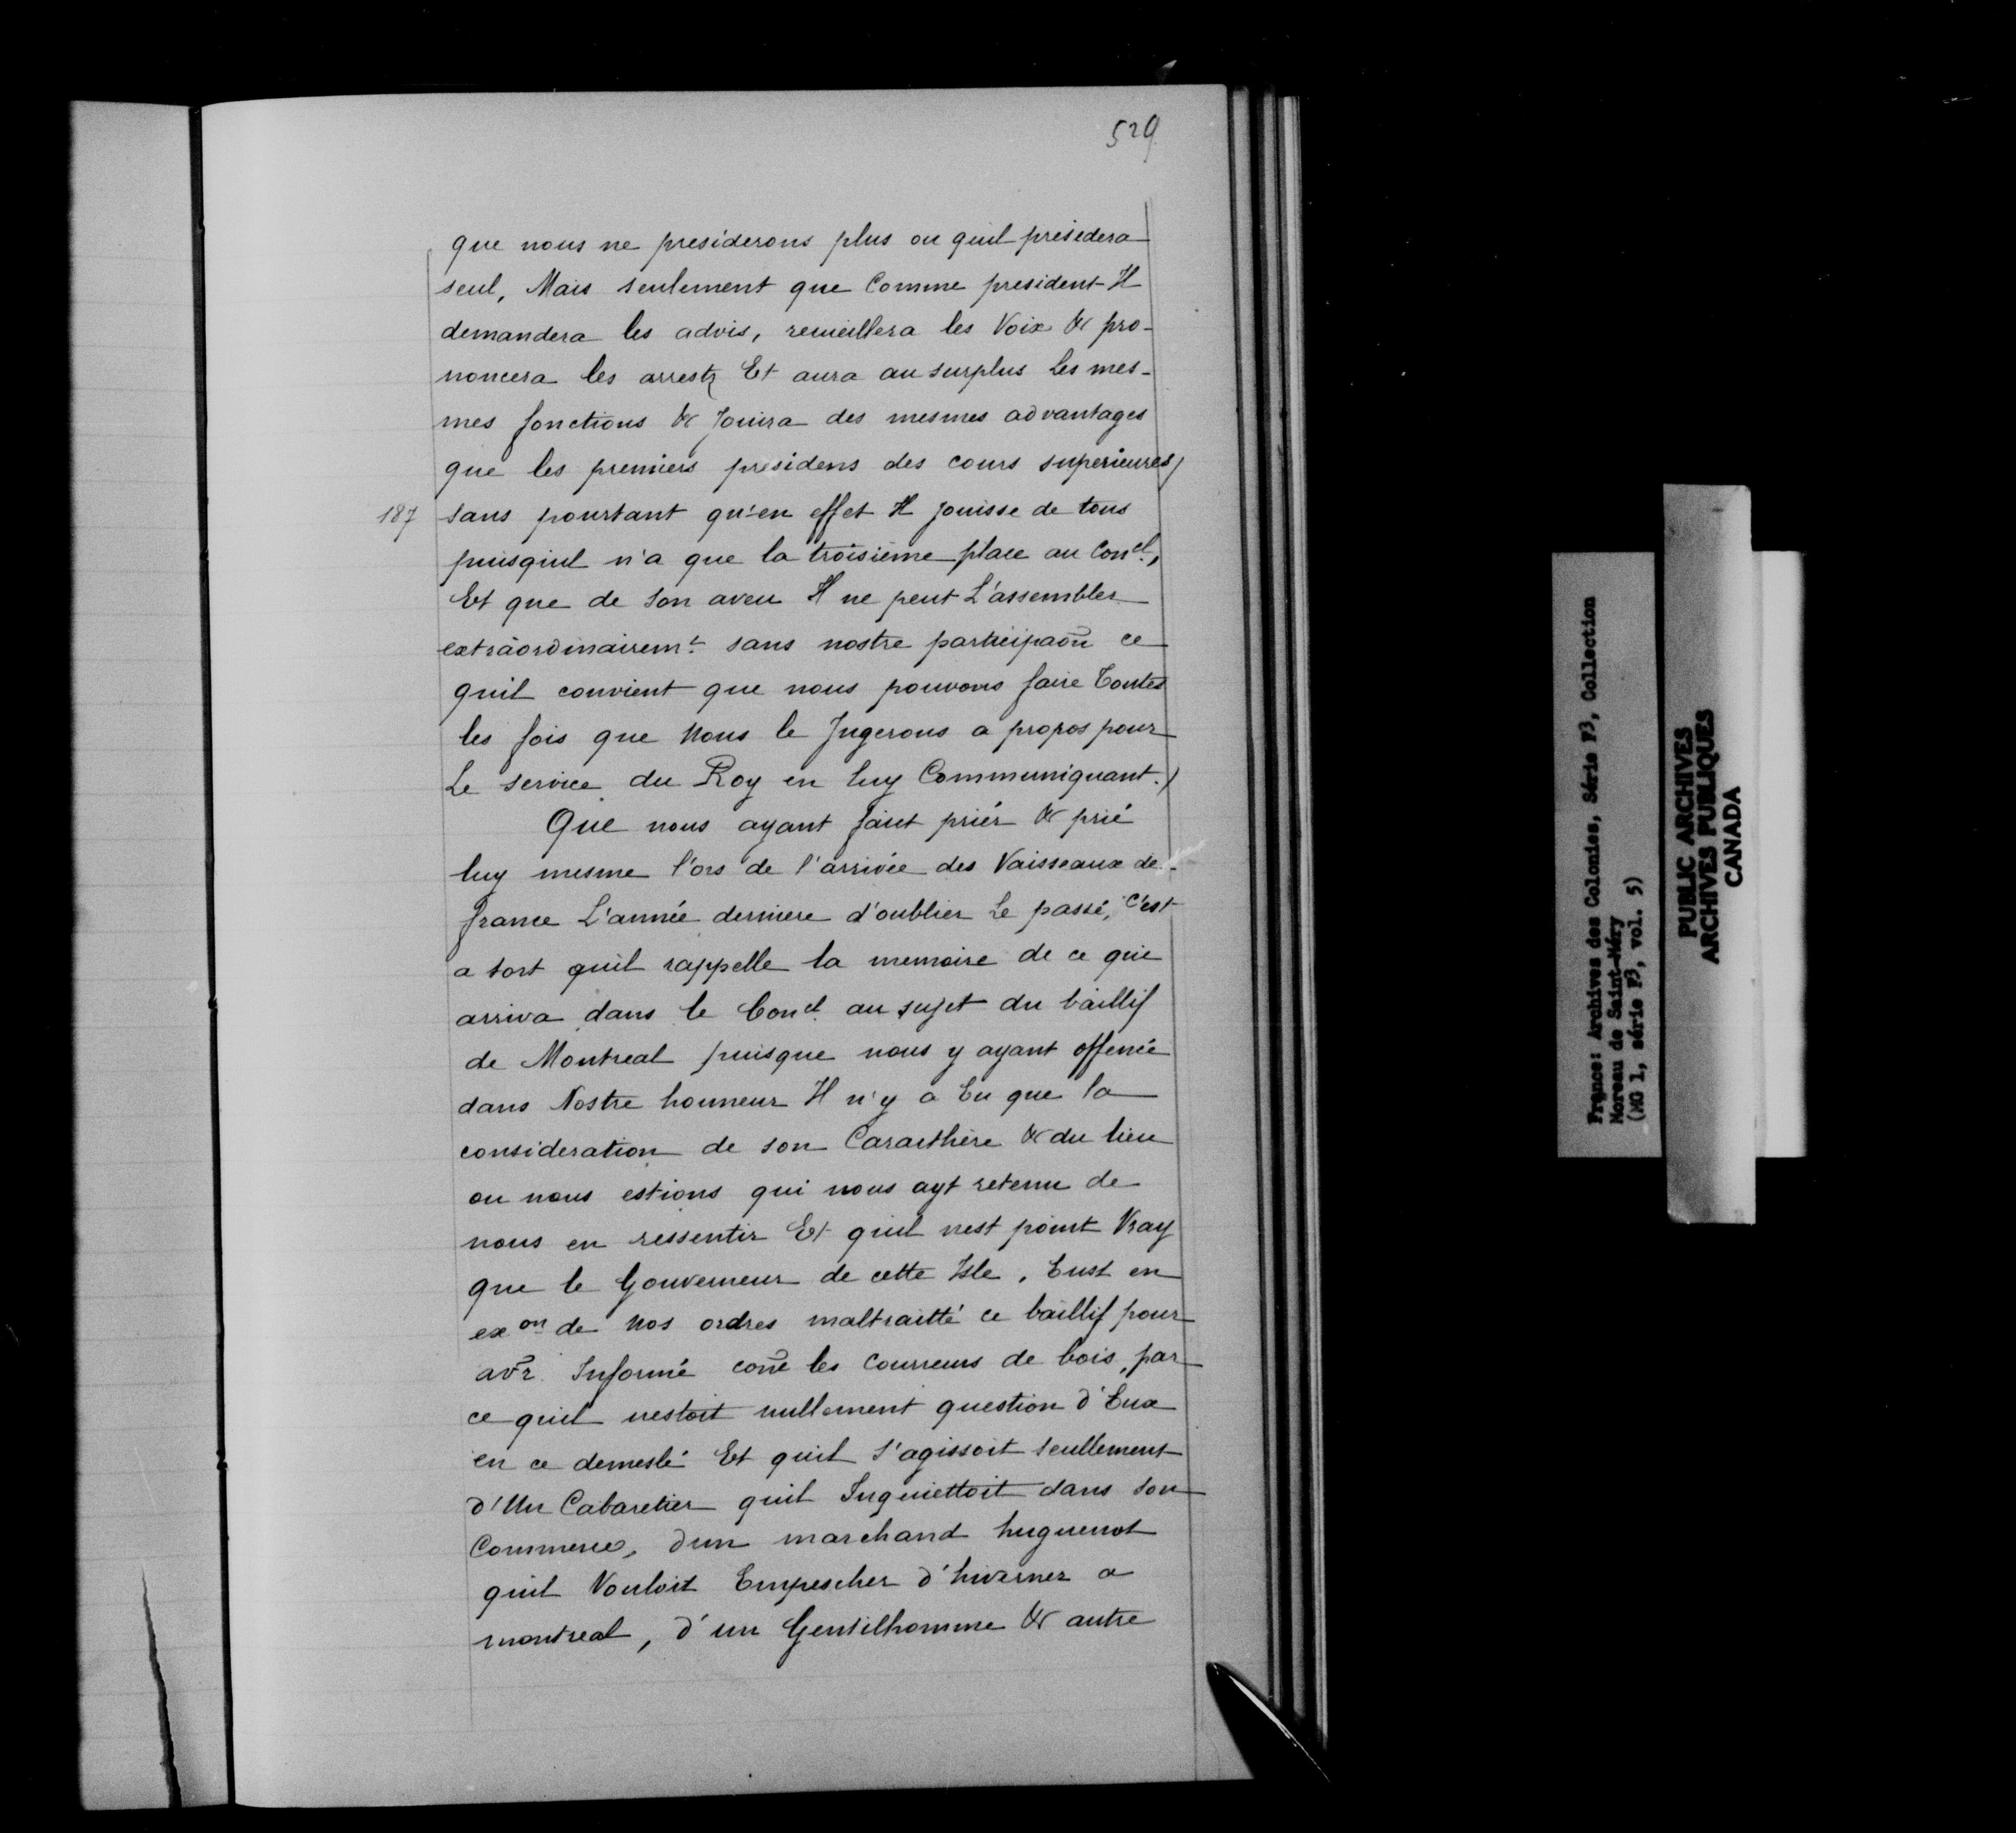 529
que nous ne presiderons plus ou quil presidera
seul, Mais seulement que Comme president Il
demandera les advis, recueillera les Voix & pro-
noncera les arrestz Et aura au surplus Les mes-
mes fonctions & Jouira des mesmes advantages
que les premiers presidens des cours superieures)
187 sans pourtant qu'en effet Il jouisse de tous
puisquil n'a que la troisième place au Con.el,
Et que de son aveu Il ne peut L'assembler
extraordinairem.t sans nostre participaõn ce
quil convient que nous pouvons faire Toutes
les fois que Nous le Jugerons a propos pour
Le service du Roy en luy Communiquant.)
Que nous ayant fait prier & prié
luy mesme l'ors de l'arrivée des Vaisseaux de
france L'année derniere d'oublier Le passé, c'est
a tort quil rappelle la memoire de ce qui
arriva dans le Con.el au sujet du baillif
de Montreal puisque nous y ayant offencé
dans Nostre honneur Il n'y a Eu que la
consideration de son Caracthère & du lieu
ou nous estions qui nous ayt retenu de
nous en ressentir Et quil nest point Vray
que le Gouverneur de cette Isle, Eust en
ex.on de Nos ordres maltraitté ce baillif pour
avr̃. Informé conẽ les Coureurs de bois, par
ce quil nestoit nullement question d'Eux
en ce demeslé Et quil s'agissoit seullement
d'Un Cabaretier quil Inquiettoit dans son
Commerce, dun marchand huguenot
quil Vouloit Empescher d'hiverner a
montreal, d'un Gentilhomme & autre
France: Archives des Colonies, Série F3, Collection
Moreau de Saint-Méry
(MG 1, série F3, vol. 5)
PUBLIC ARCHIVES
ARCHIVES PUBLIQUES
CANADA